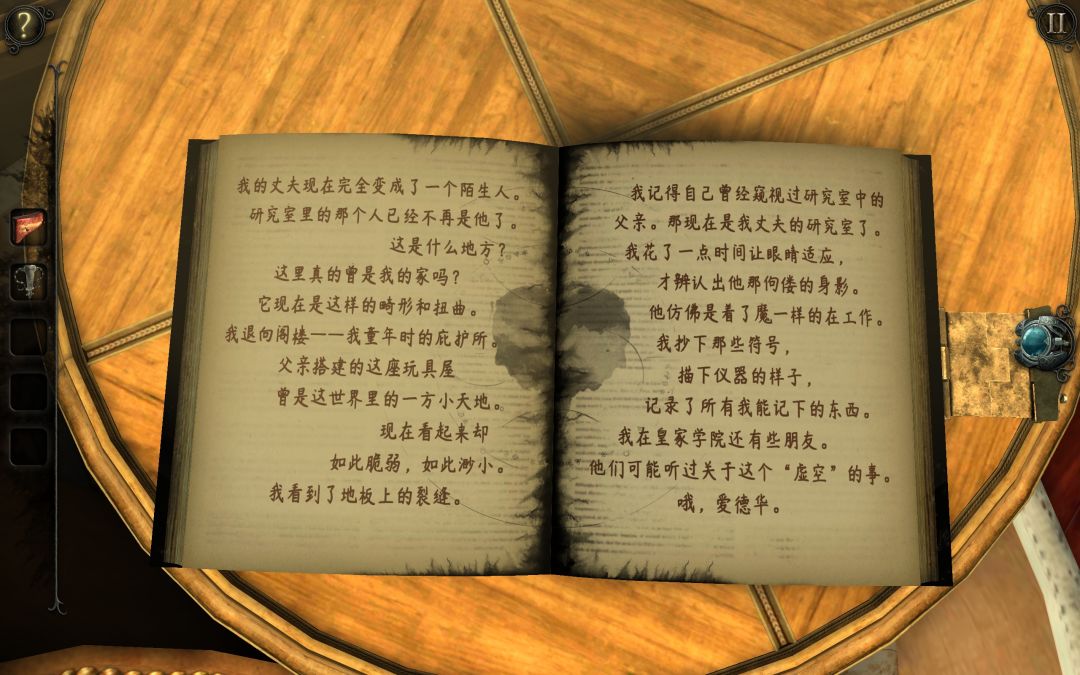 我的丈夫现在完全变成了一个陌生人。
研究室里的那个人已经不再是他了。
这是什么地方？
这里真的曾是我的家吗？
它现在是这样的畸形和扭曲。
我退向阁楼——我童年时的庇护所。
父亲搭建的这座玩具屋
曾是这世界里的一方小天地。
现在看起来却
如此脆弱，如此渺小。
我看到了地板上的裂缝。
我记得自己曾经窥视过研究室中的
父亲。那现在是我丈夫的研究室了。
我花了一点时间让眼睛适应，
才辨认出他那佝偻的身影。
他仿佛是着了魔一样的在工作。
我抄下那些符号，
描下仪器的样子，
记录了所有我能记下的东西。
我在皇家学院还有些朋友。
他们可能听过关于这个“虚空”的事。
哦，爱德华。